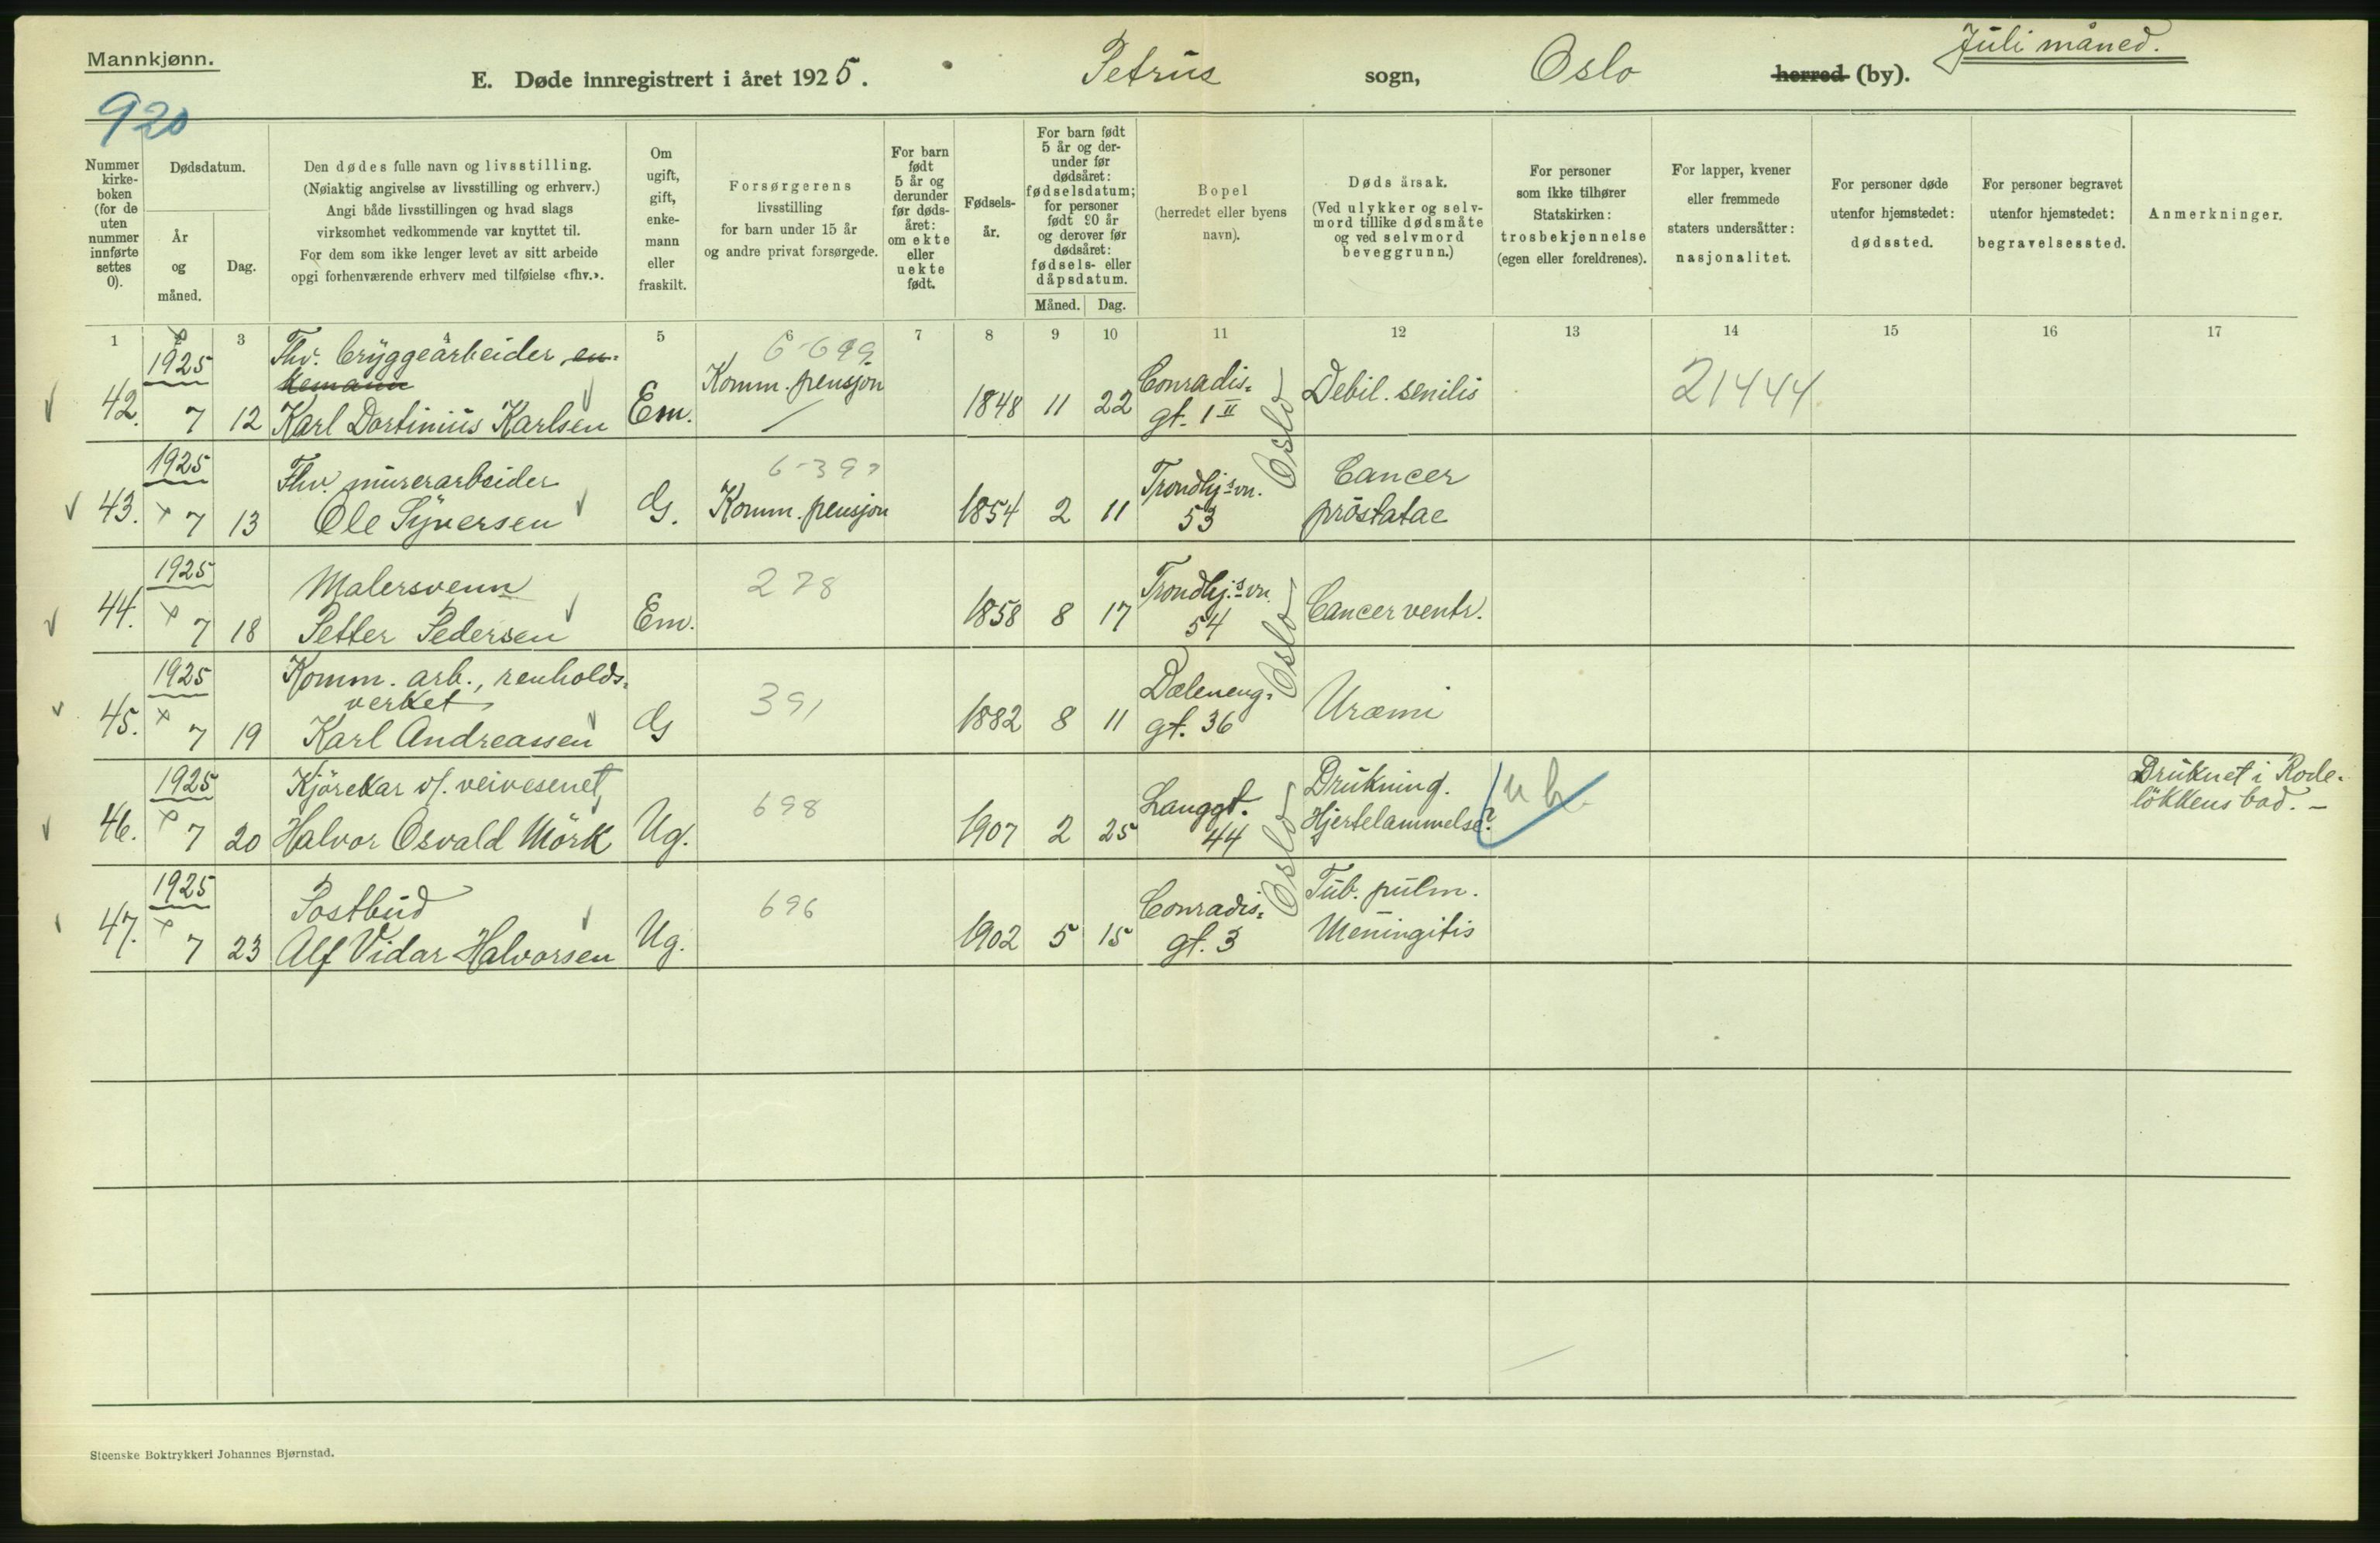 Mannkjønn.
E. Døde innregistrert i året 1925.
Petrus sogn, Oslo herred (by).
Juli måned.
920
Nummer kirke-boken (for de uten nummer innførte settes 0).
Dødsdatum.
År og måned.
Dag.
Den dødes fulle navn og livsstilling.
(Nøiaktig angivelse av livsstilling og erhverv.)
Angi både livsstillingen og hvad slags
virksomhet vedkommende var knyttet til.
For dem som ikke lenger levet av sitt arbeide
opgi forhenværende erhverv med tilføielse «fhv.».
Om ugift, gift, enke-mann eller fraskilt.
Forsørgerens livsstilling
for barn under 15 år
og andre privat forsørgede.
For barn født 5 år og derunder før døds-året: om ekte eller uekte født.
Fødsels-år.
For barn født 5 år og der-under før dødsåret: fødselsdatum; for personer født 90 år og derover før dødsåret: fødsels- eller dåpsdatum.
Måned. Dag.
Bopel
(herredet eller byens navn).
Døds årsak.
(Ved ulykker og selv-mord tillike dødsmåte og ved selvmord beveggrunn.)
For personer som ikke tilhører Statskirken: trosbekjennelse (egen eller foreldrenes).
For lapper, kvener eller fremmede staters undersåtter: nasjonalitet.
For personer døde utenfor hjemstedet: dødssted.
For personer begravet utenfor hjemstedet: begravelsessted.
Anmerkninger.
1 2 3 4 5 6 7 8 9 10 11 12 13 14 15 16 17
1925 Fhv. bryggearbeider, en-
kemann
6-699
42. 7 12 Karl Dortinius Karlsen Em. Komm. pensjon 1848 11 22 Conradis-
gt. 1 II Oslo Debil. senilis 21444
1925 Fhv. murerarbeider
43. 7 13 Ole Syversen G. Komm. pensjon 1854 2 11 Trondhj.s vn.
53 Cancer
prostatae
1925 Malersvenn
278
44. 7 18 Petter Pedersen Em. 1858 8 17 Trondhj.s vn.
54 Oslo Cancer ventr.
1925 Komm. arb., renholds-
verket
391
45. 7 19 Karl Andreassen G 1882 8 11 Dæleneng-
gt. 36 Uræmi
1925 Kjörekar v/. veivesenet,
698
46. 7 20 Halvor Osvald Mörk Ug. 1907 2 25 Langgt.
44 Oslo Drukning.
Hjertelammelse? Druknet i Rode-
lökkens bad. –
1925 Postbud
696
47. 7 23 Alf Vidar Halvorsen Ug. 1902 5 15 Conradis-
gt. 3 Tub. pulm.
Meningitis
Steenske Boktrykkeri Johannes Bjørnstad.